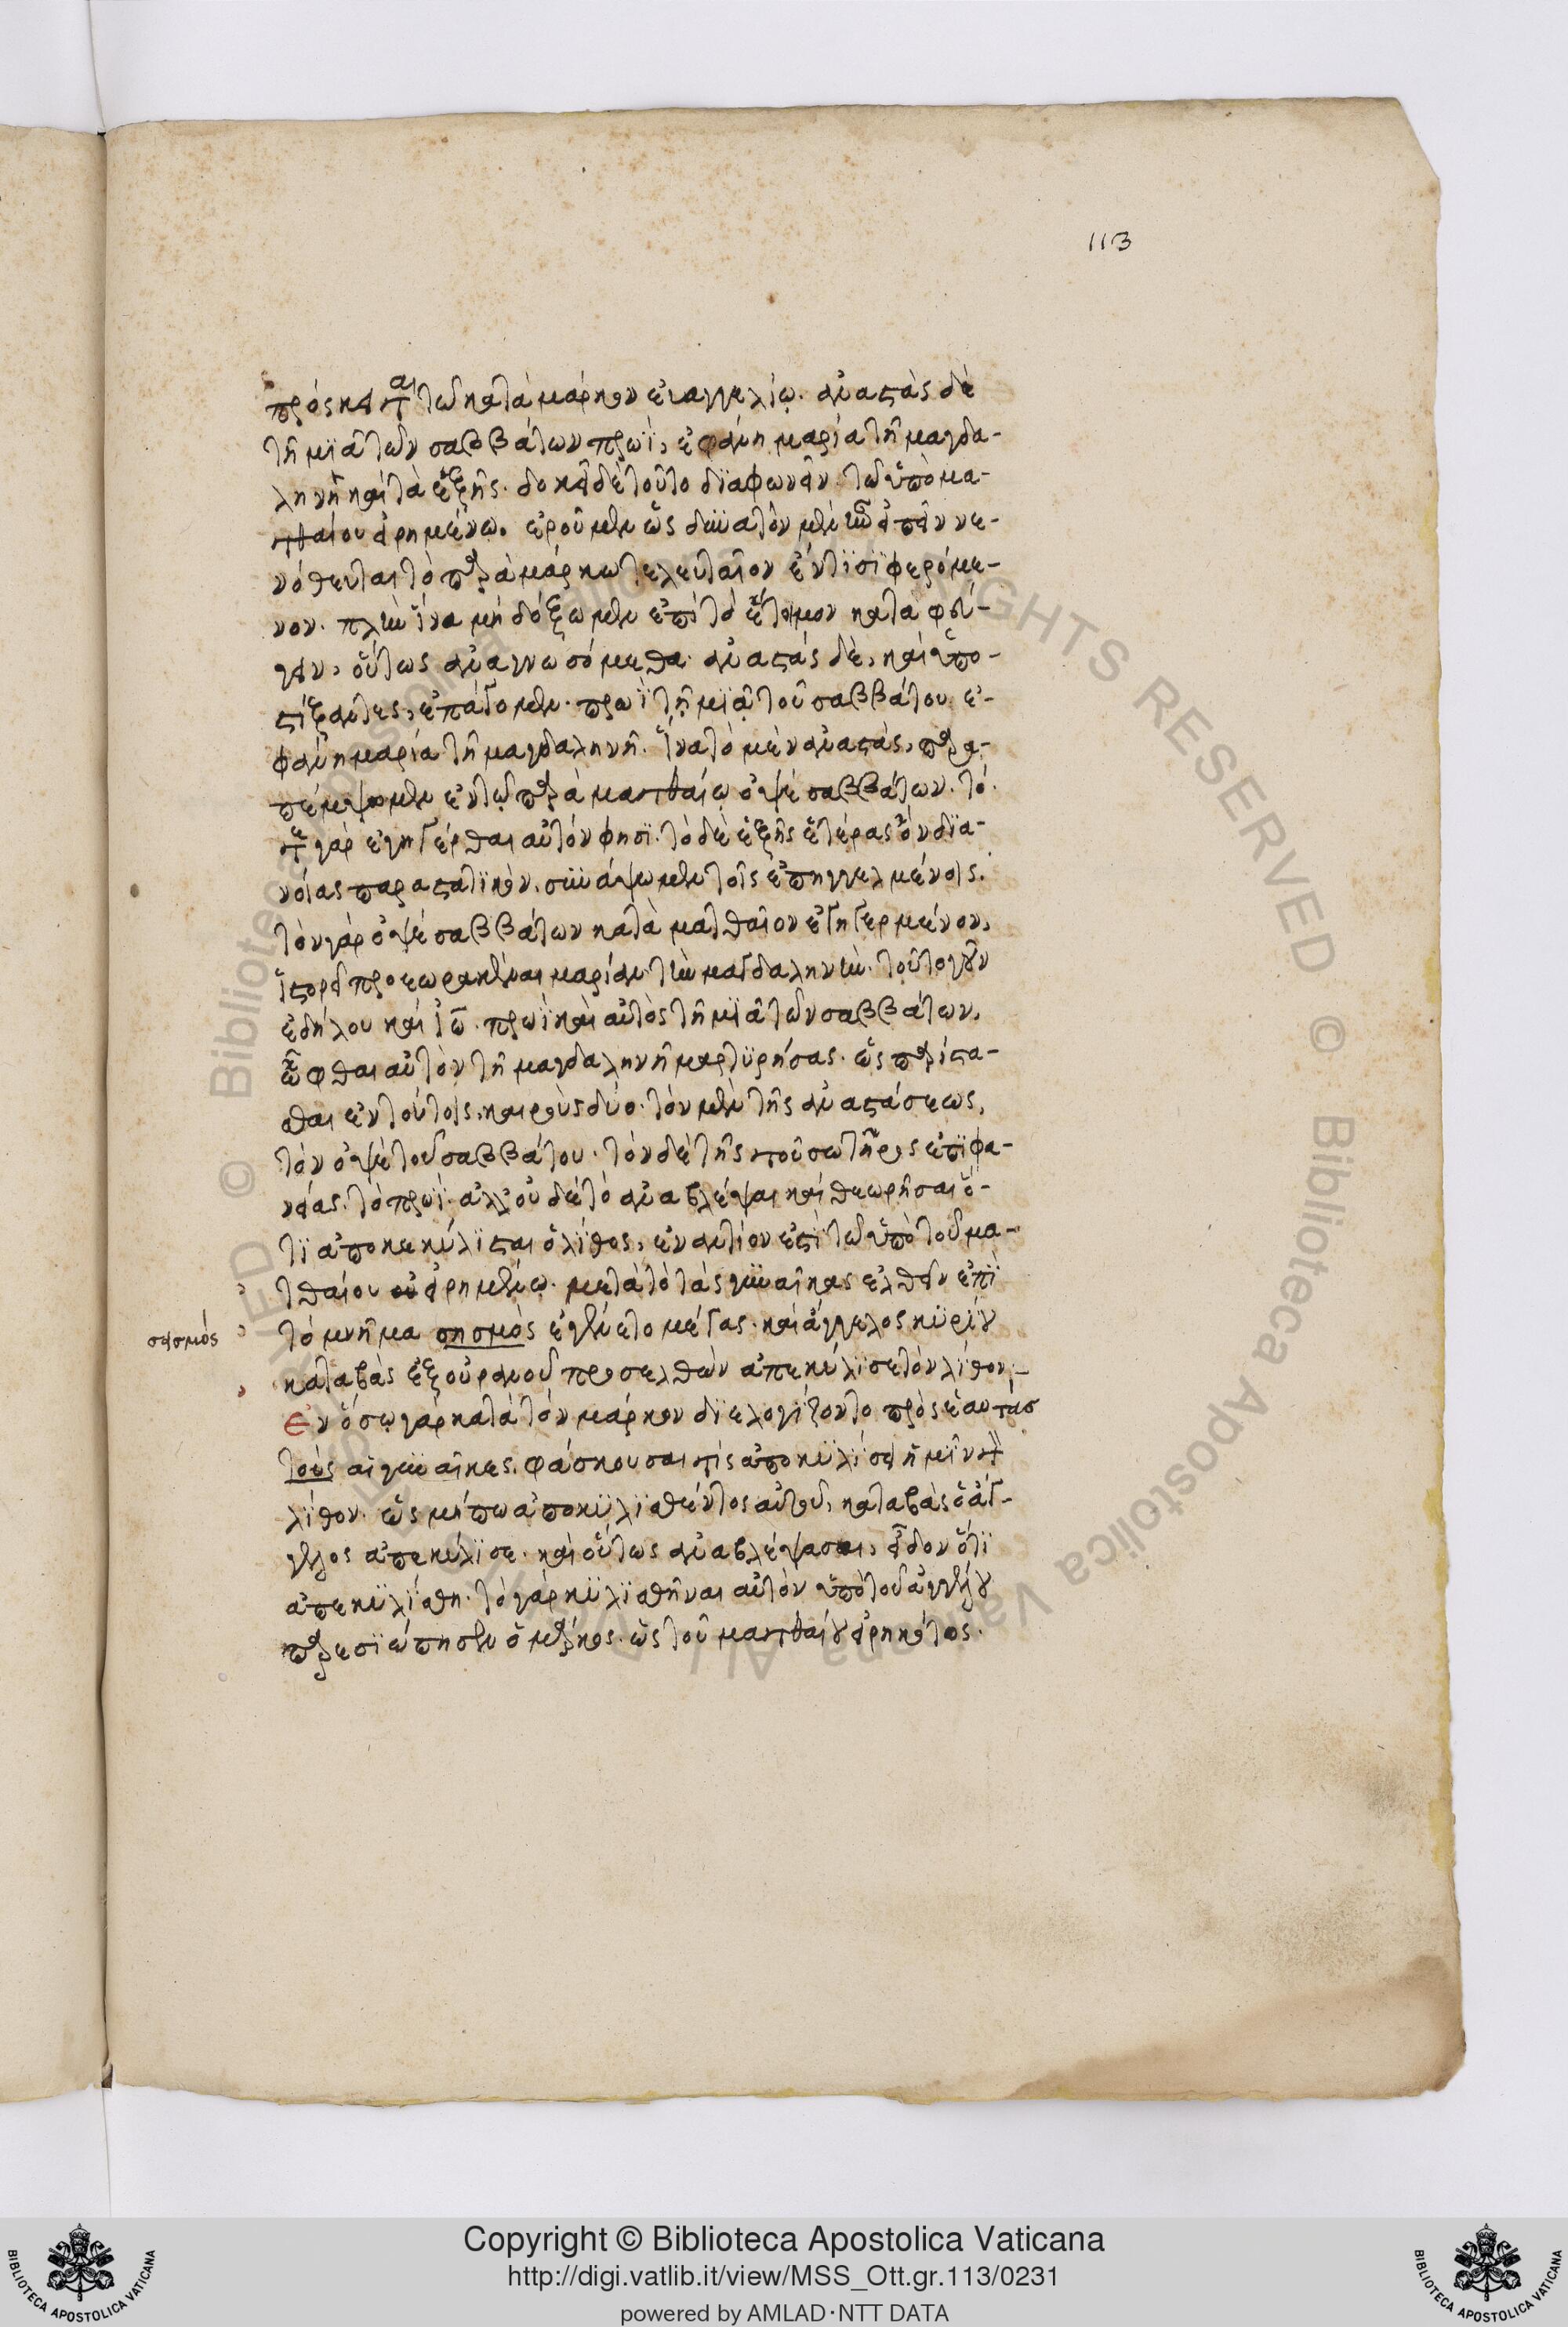 113
πρόσκειται τῶ κατὰ μάρκον εὐαγγελίῳ. ἀναστὰς δὲ
τῆ μϊᾶ τῶν σαββάτων πρωῒ, ἐφάνη μαρία τῆ μαγδα-
ληνῆ καὶ τὰ ἑξῆς. δοκεῖ δὲ τοῦτο διαφωνεῖν τῶ ὑπὸ μα-
τθαίου εἰρημένω. ἐροῦμεν ὡς δυνατὸν μὲν εἰπεῖν νε-
νόθευται τὸ παρὰ μάρκω τελευταῖον ἔν τισι φερόμε-
νον. πλὴν ἵνα μὴ δόξωμεν ἐπὶ τὸ ἕτοιμον καταφεύ-
γειν, οὕτως ἀναγνωσόμεθα. ἀναστάς δὲ, καὶ ὑπο-
στίξαντες, ἐπάγομεν. πρωῒ τῇ μιᾷ τοῦ σαββάτου ἐ-
φάνη μαρία τῆ μαγδαληνῆ. ἵνα τὸ μὲν ἀναστὰς, παρα-
πέμψωμεν ἐν τῷ παρὰ ματθαίῳ ὀψὲ σαββάτων. τό-
τε γὰρ ἐγηγέρθαι αὐτόν φησι. τὸ δὲ ἑξῆς ἑτέρας ὂν δια-
νοίας παραστατικὸν, συνάψωμεν τοῖς ἐπηγγελμένοις.
τὸν γὰρ ὀψὲ σαββάτων κατὰ ματθαῖον ἐγηγερμένον,
ἱστορεῖ προεωρακέναι μαρίαν τὴν μαγδαληνὴν. τοῦτο γοῦν
ἐδήλου καὶ ἰω. πρωῒ καὶ αὐτὸς τῆ μϊᾶ τῶν σαββάτων,
ὦφθαι αὐτὸν τῆ μαγδαληνῆ μαρτυρήσας. ὡς παρίστα-
σθαι ἐν τούτοις, καιροὺς δύο. τὸν μὲν τῆς ἀναστάσεως,
τὸν ὀψὲ τοῦ σαββάτου. τὸν δὲ τῆς τοῦ σωτῆρος ἐπιφα-
νείας, τὸ πρωΐ. ἀλλ' οὐδὲ τὸ ἀναβλέψαι καὶ θεωρῆσαι ὅ-
τι ἀποκεκύλισται ὁ λίθος, ἐναντίον ἐστὶ τῶ ὑπὸ τοῦ μα-
τθαίου εἰρημένῳ. μετὰ τὸ τὰς γυναῖκας ἐλθεῖν ἐπὶ
τὸ μνῆμα σησμὸς ἐγένετο μέγας. καὶ ἄγγελος κυρίου
σεισμός
καταβὰς ἐξ οὐρανοῦ προσελθὼν ἀπεκύλισε τὸν λίθον:-
ἐν ὅσῳ γὰρ κατὰ τὸν μάρκον διελογίζοντο πρὸς ἑαυτὰς
τοὺς αἱ γυναῖκες, φάσκουσαι τίς ἀποκυλίσει ἡμῖν τὸν
λίθον. ὡς μήπω ἀποκυλισθέντος αὐτοῦ, καταβὰς ὁ ἄγ-
γελος ἀπεκύλισε. καὶ οὕτως ἀναβλέψασαι, εἶδον ὅτι
ἀπεκυλίσθη. τὸ γὰρ κυλισθῆναι αὐτὸν ὑπὸ τοῦ ἀγγέλου
παρεσιώπησεν ὁ μάρκος. ὡς τοῦ ματθαίου εἰρηκότος.
Copyright © Biblioteca Apostolica Vaticana
http://digi.vatlib.it/view/MSS_Ott.gr.113/0231
powered by AMLAD·NTT DATA